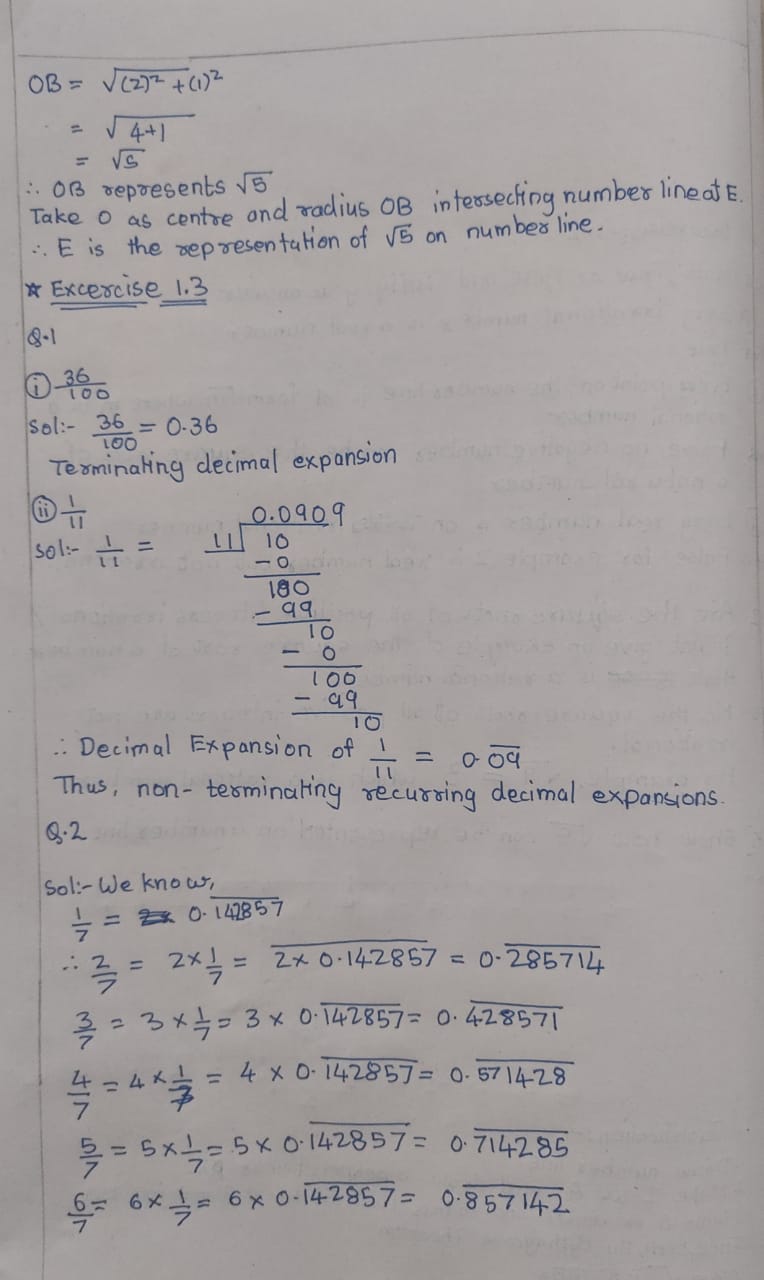 OB = √(2)² + (1)²
= √4+1
= √5
∴ OB represents √5
Take O as centre and radius OB intersecting number line at E.
∴ E is the representation of √5 on number line.
* Excercise 1.3
Q.1
(i) 36/100
Sol:- 36/100 = 0.36
Terminating decimal expansion
(ii) 1/11
Sol:- 1/11 =
0.0909
11 10
- 0
100
- 99
10
- 0
100
- 99
10
∴ Decimal Expansion of 1/11 = 0.0̅9̅
Thus, non-terminating recurring decimal expansions.
Q.2
Sol:- We know,
1/7 = 0.1̅4̅2̅8̅5̅7̅
∴ 2/7 = 2×1/7 = 2̅ ̅×̅ ̅0̅.̅1̅4̅2̅8̅5̅7̅ = 0.2̅8̅5̅7̅1̅4̅
3/7 = 3×1/7 = 3 × 0.1̅4̅2̅8̅5̅7̅ = 0.4̅2̅8̅5̅7̅1̅
4/7 = 4×1/7 = 4 × 0.1̅4̅2̅8̅5̅7̅ = 0.5̅7̅1̅4̅2̅8̅
5/7 = 5×1/7 = 5 × 0.1̅4̅2̅8̅5̅7̅ = 0.7̅1̅4̅2̅8̅5̅
6/7 = 6×1/7 = 6 × 0.1̅4̅2̅8̅5̅7̅ = 0.8̅5̅7̅1̅4̅2̅